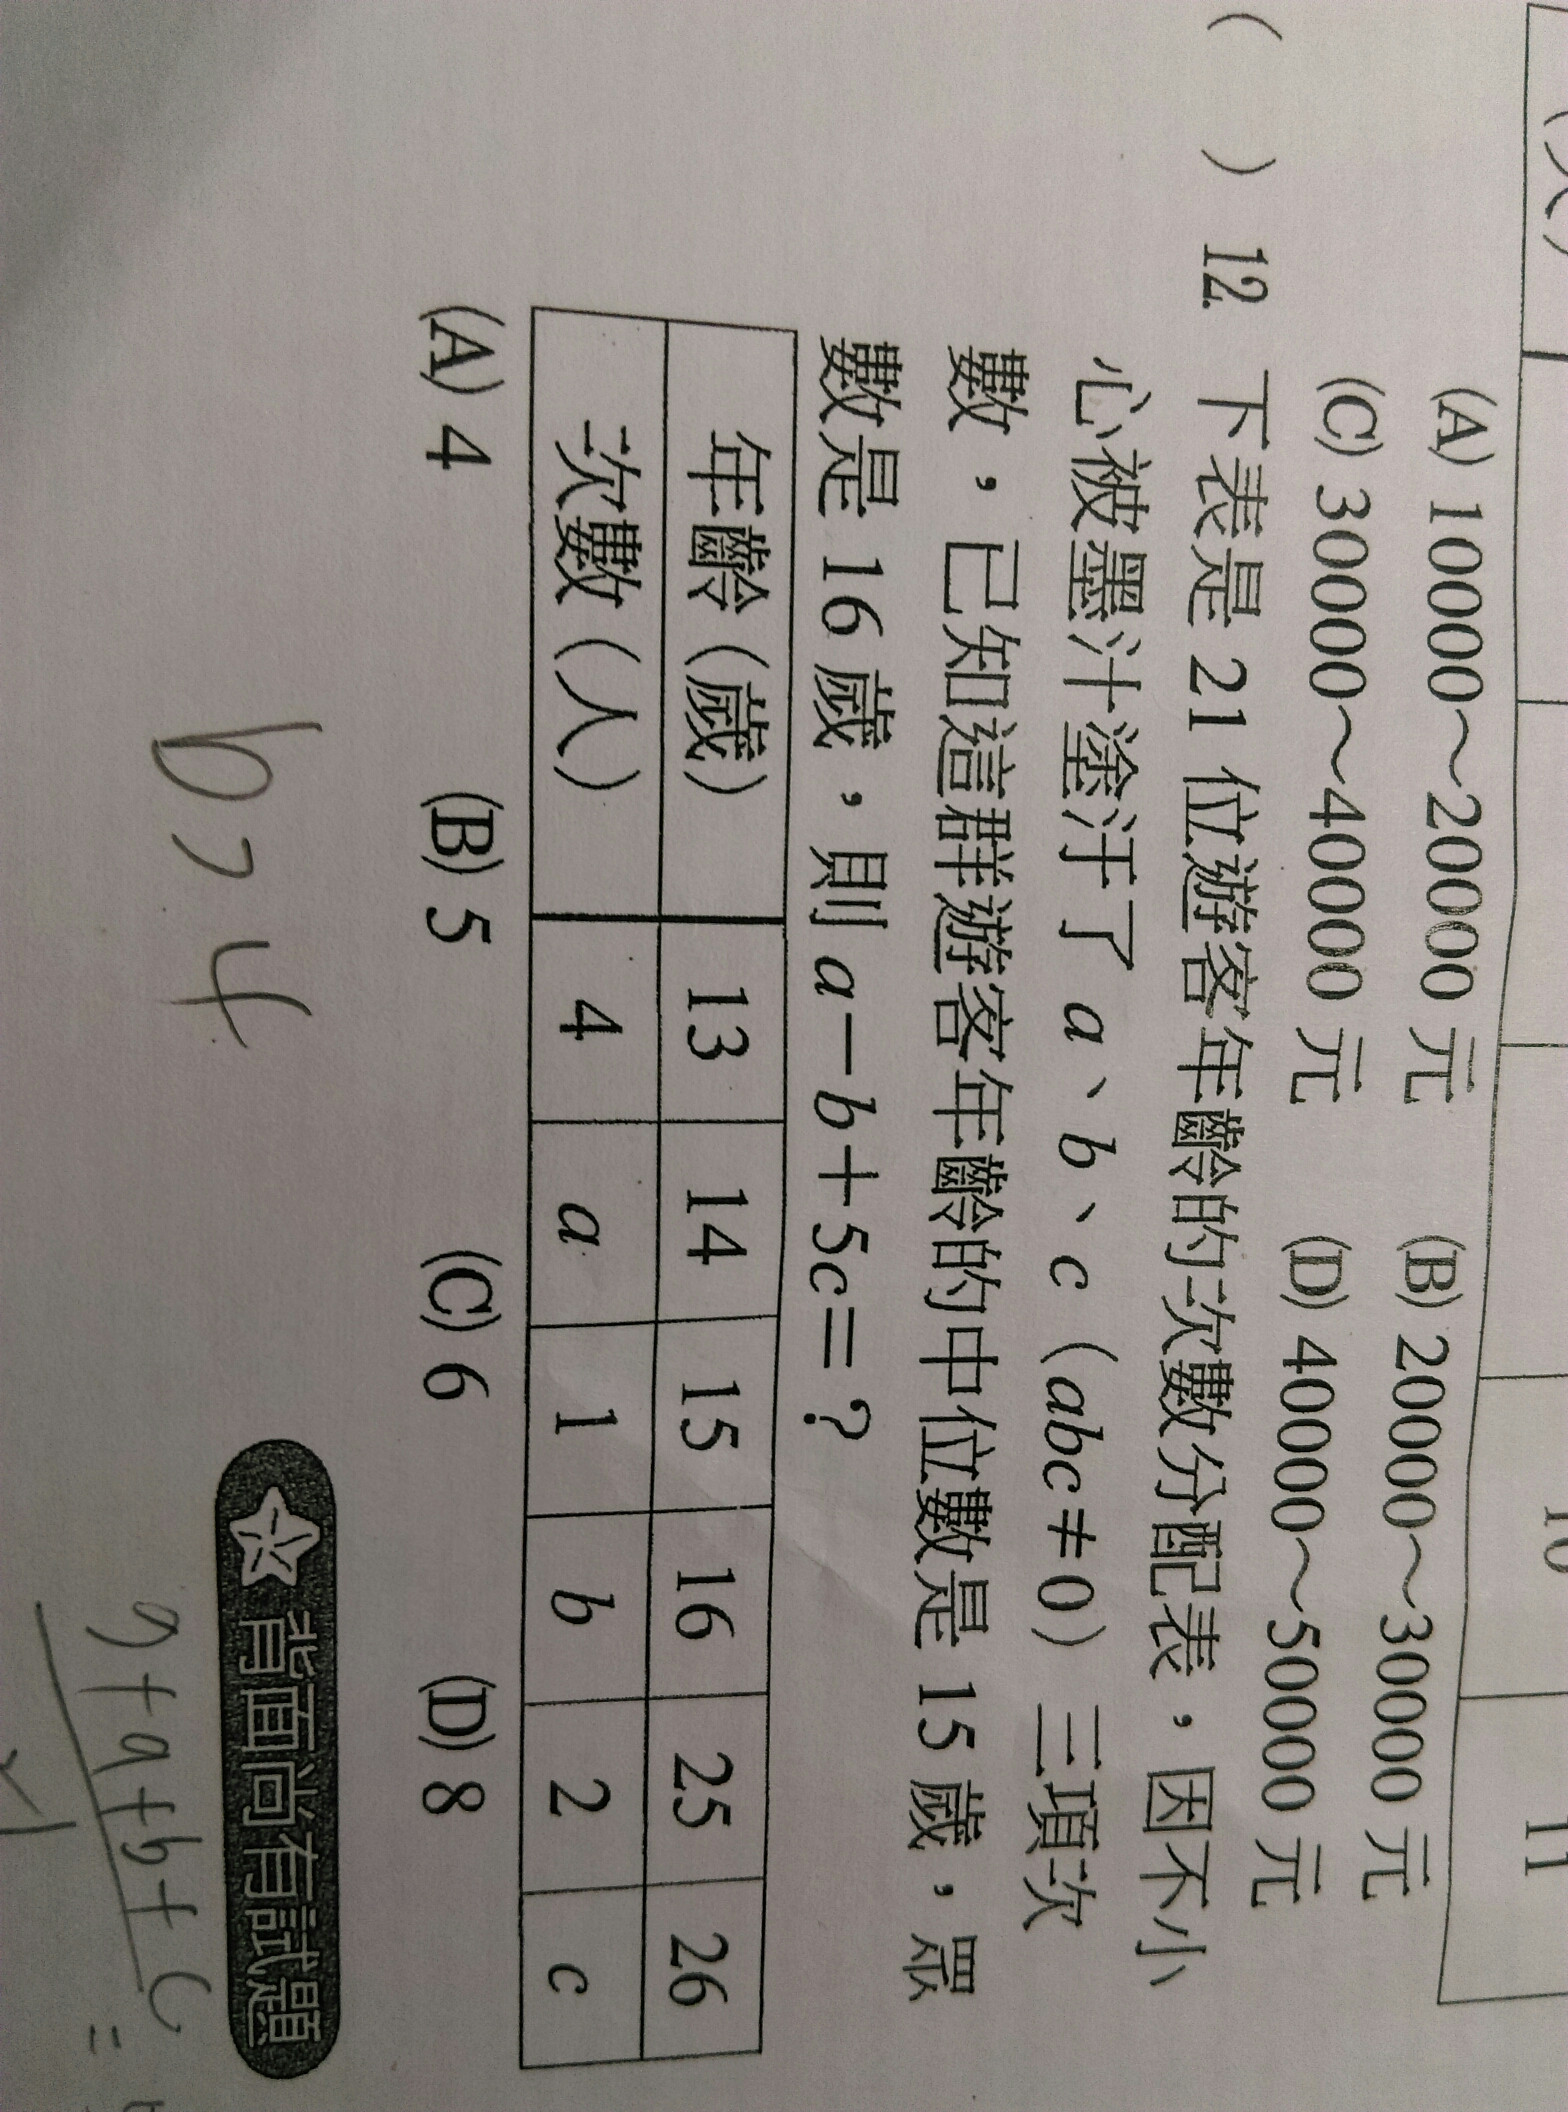 (A) 10000～20000 元 (B) 20000～30000 元
(C) 30000～40000 元 (D) 40000～50000 元
( ) 12. 下表是 21 位遊客年齡的次數分配表，因不小
心被墨汁塗汙了 a、b、c（abc≠0）三項次
數，已知這群遊客年齡的中位數是 15 歲，眾
數是 16 歲，則 a－b＋5c＝？
年齡（歲） 13 14 15 16 25 26
次數（人） 4 a 1 b 2 c
(A) 4 (B) 5 (C) 6 (D) 8
背面尚有試題
b>4